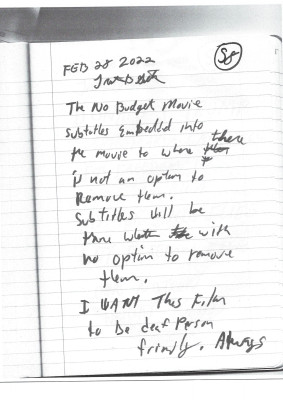 58
FEB 28 2022
The No Budget Movie
subtitles Embedded into
the movie to where there
is not an option to
Remove them.
Subtitles will be
there with
no option to remove
them.
I WANT This Film
to Be deaf Person
frindly. Always